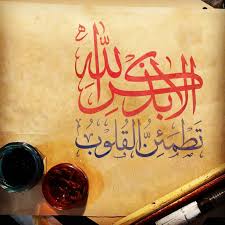 ألا بذكر الله
تَطْمَئِنُّ القُلُوبُ